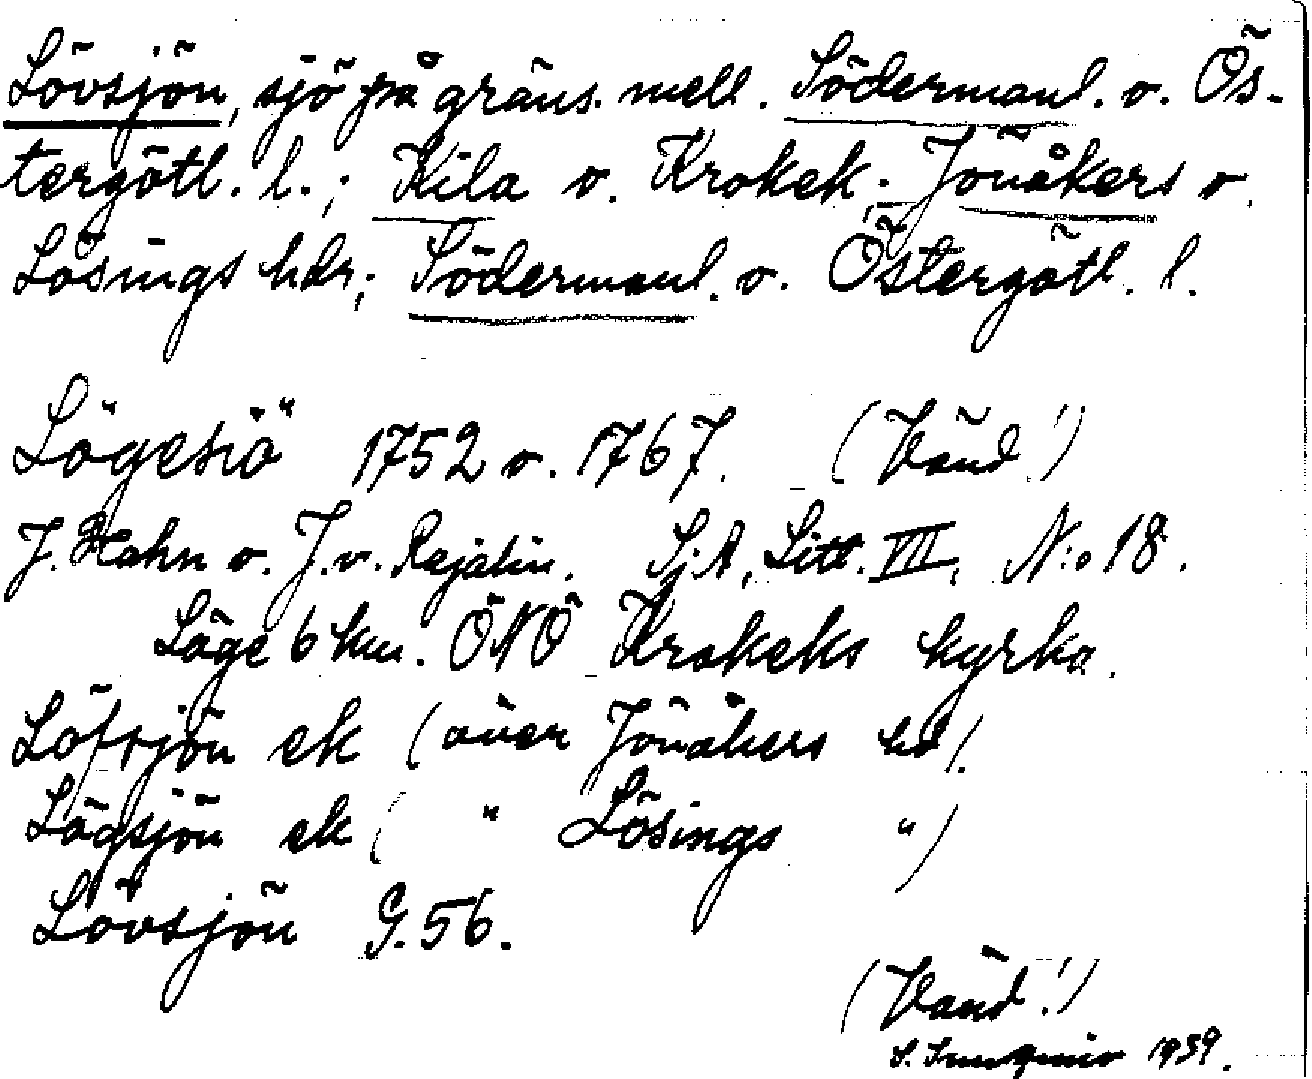 Lövsjön, sjö på gräns. mell. Södermanl. o. Ös-
tergötl. l.; Kila o. Krokek; Jönåkers o.
Lösings hdr; Södermanl. o. Östergötl. l.
Lögesiö 1752 o. 1767. (Vänd!)
J. Hahn o. J. v. Rajalin. SjA, Litt. VII, N:o 18.
Läge 6 km. ÖNÖ Krokeks kyrka.
Löfsjön ek (över Jönåkers hd).
Lögsjön ek ( " Lösings " )
Lövsjön G. 56.
(Vänd!)
S. 1959.